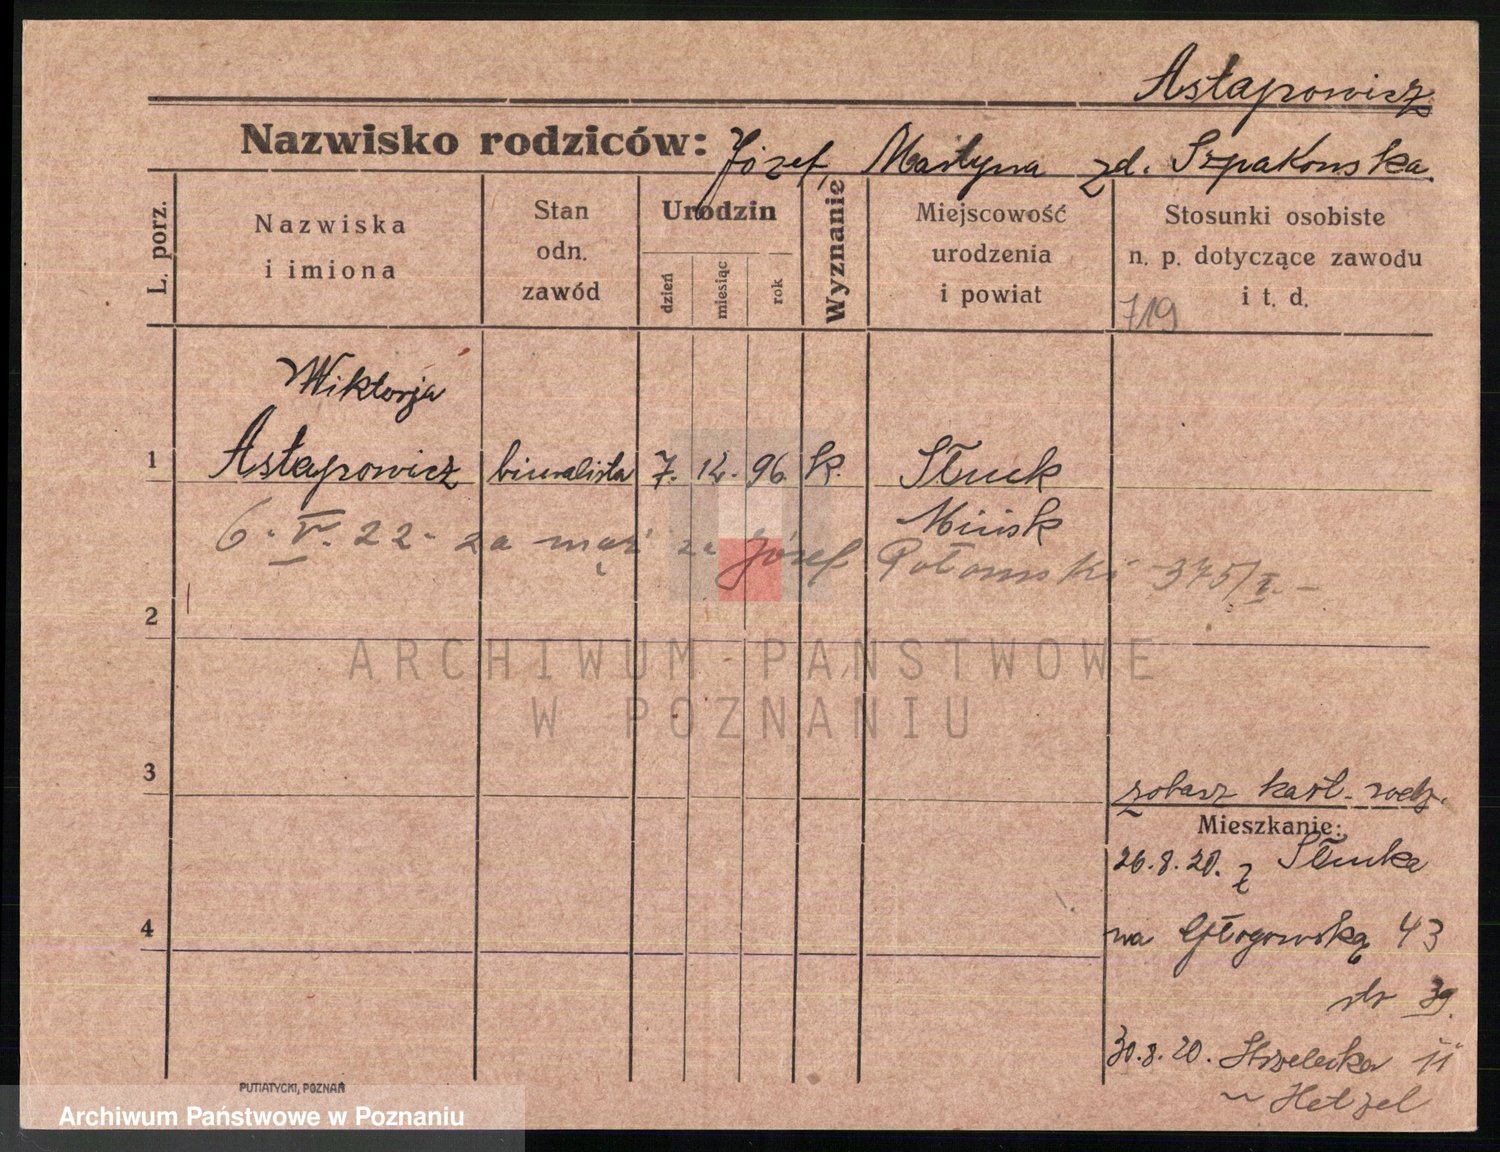 Astapowicz
Nazwisko rodziców: Józef, Martyna zd. Szpakowska.
L. porz.
Nazwiska
i imiona
Stan
odn.
zawód
Urodzin
dzień
miesiąc
rok
Wyznanie
Miejscowość
urodzenia
i powiat
Stosunki osobiste
n. p. dotyczące zawodu
i t. d.
719
Wiktorja
1 Astapowicz biuralista 7. 12. 96. k. Słuck
Mińsk
6. V. 22 - za mąż za Józef Potomski 375/I. -
2
ARCHIWUM PAŃSTWOWE
W POZNANIU
3
zobacz kart. rodz.
Mieszkanie:
26.8.20. z Słucka
4
na Głogowską 43
str 39.
30.8.20. Strzelecka 11
~ Hetzel
PUTIATYCKI, POZNAŃ
Archiwum Państwowe w Poznaniu